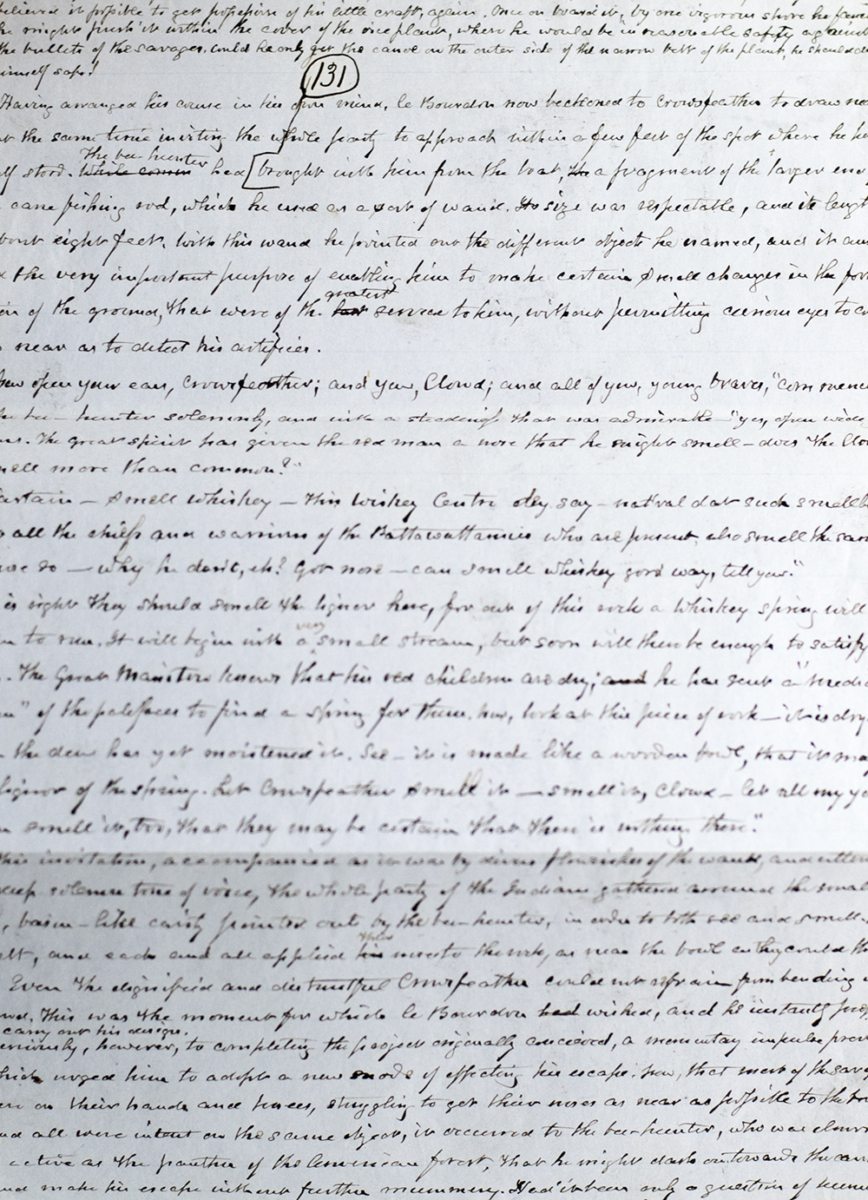 believed it possible to get possession of his little craft, again. Once on board it, by one vigorous shove he
he might push it within the cover of the rice plant, where he would be in reasonable safety against
the bullets of the savages. Could he only get the canoe on the outer side of the narrow belt of the plant, he should
himself safe!
131
Having arranged his course in his own mind, le Bourdon now beckoned to Crowsfeather to draw
at the same time inviting the whole party to approach within a few feet of the spot where he
stood. The bee hunter had brought with him from the boat, a fragment of the larger end
cane fishing rod, which he used as a sort of wand. Its size was respectable, and its length
about eight feet. With this wand he pointed out the different objects he named, and it
the very important purpose of enabling him to make certain small changes in the
of the ground, that were of the greatest service to him, without permitting curious eyes to
near as to detect his artifices.
open your ears, Crowsfeather; and you, Cloud; and all of you, young braves," commenced
bee hunter solemnly, and with a steadiness that was admirable — "yes, open wide
The great spirit has given the red man a nose that he might smell — does the
smell more than common?"
Sartain — smell whiskey — this Wiskey Centre dey say — nat'ral dat such smell
all the chiefs and warriors of the Pattawattamies who are present, also smell the
so — why he don't, eh? Got nose — can smell whiskey good way, tell you."
is right they should smell the liquor here, for out of this rock a whiskey spring will
to run. It will begin with a very small stream, but soon will there be enough to satisfy
The Great Manitou knows that his red children are dry; he has sent a
of the palefaces to find a spring for them. Now, look at this piece of rock — it is dry
the dew has yet moistened it. See — it is made like a wooden bowl, that it
liquor of the spring. Let Crowsfeather smell it — smell it, Cloud — let all my
smell it, too, that they may be certain that there is nothing there."
this invitation, accompanied as it was by divers flourishes of the wand, and
deep solemn tone of voice, the whole party of the Indians gathered around the small
basin-like cavity pointed out by the bee-hunter, in order to both see and smell.
and each and all applied their noses to the rock, as near the bowl as they could
Even the dignified and distrustful Crowsfeather could not refrain from bending
This was the moment for which le Bourdon wished, and he instantly
carry out his design.
however, to completing the project originally conceived, a momentary impulse
which urged him to adopt a new mode of effecting his escape. Now, that most of the
on their hands and knees, struggling to get their noses as near as possible to the
and all were intent on the same object, it occurred to the bee-hunter, who was
active as the panther of the American forest, that he might dash on towards the
and make his escape without further mummery. Had it been only a question of